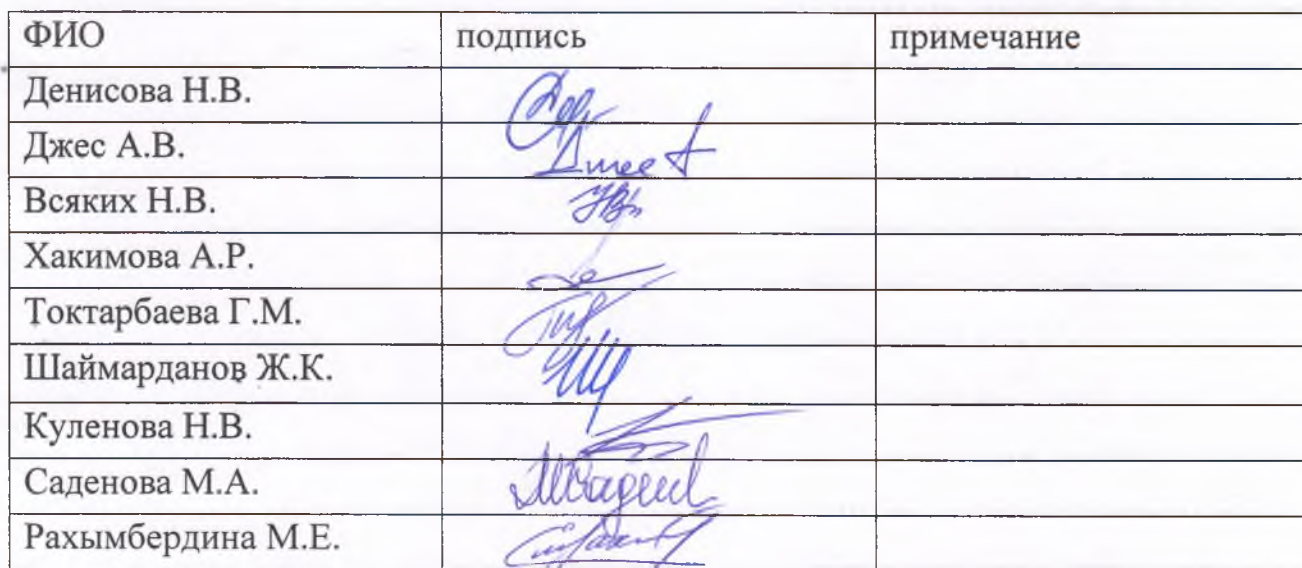 ФИО подпись примечание
Денисова Н.В.
Джес А.В.
Всяких Н.В.
Хакимова А.Р.
Токтарбаева Г.М.
Шаймарданов Ж.К.
Куленова Н.В.
Саденова М.А.
Рахымбердина М.Е.